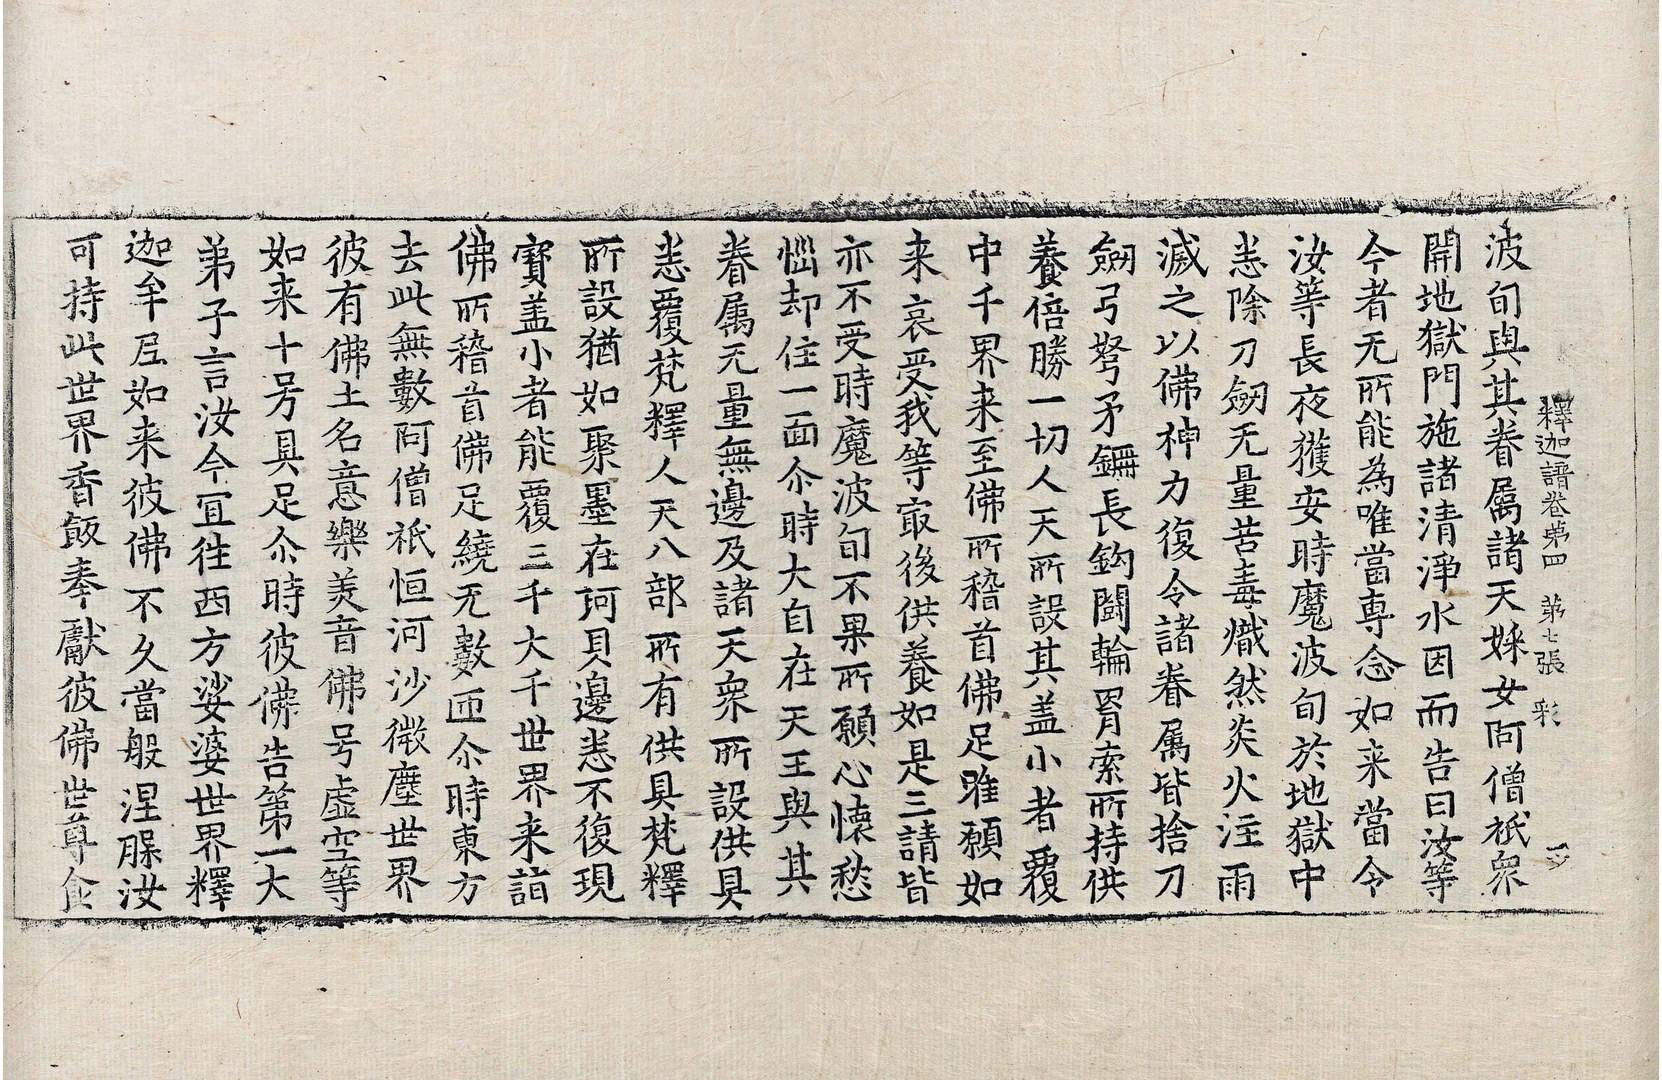 釋迦譜卷第四 第七張 彩
波旬與其眷属諸天婇女阿僧衹衆
開地獄門施諸清淨水因而告曰汝等
今者无所能為唯當專念如来當令
汝等長夜獲安時魔波旬於地獄中
悉除刀劒无量苦毒熾然炎火注雨
滅之以佛神力復令諸眷属皆捨刀
劒弓弩矛鑺長鈎闘輪罥索所持供
養倍勝一切人天所設其盖小者覆
中千界来至佛所稽首佛足唯願如
来哀受我等㝡後供養如是三請皆
亦不受時魔波旬不果所願心懷愁
惱却住一面尒時大自在天王與其
眷属无量無邊及諸天衆所設供具
悉覆梵釋人天八部所有供具梵釋
所設猶如聚墨在珂貝邊悉不復現
寳盖小者能覆三千大千世界来詣
佛所稽首佛足繞无數匝尒時東方
去此無數阿僧祇恒河沙微塵世界
彼有佛土名意樂美音佛号虚空等
如来十号具足尒時彼佛告第一大
弟子言汝今冝往西方娑婆世界釋
迦牟尼如来彼佛不久當般涅槃汝
可持此世界香飯奉獻彼佛世尊食